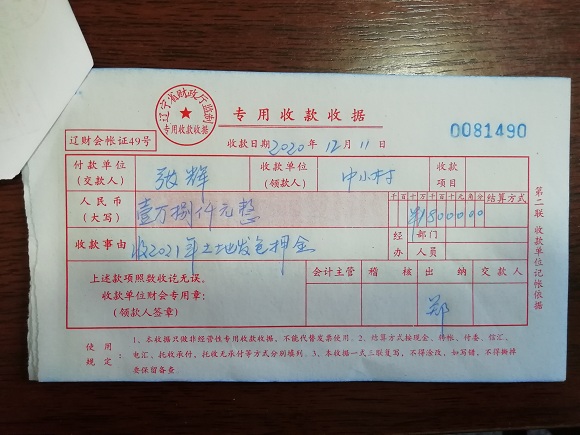 辽宁省财政厅监制
专用收款收据
专用收款收据
0081490
辽财会帐证49号
收款日期2020年12月11日
付款单位
(交款人)
张辉
收款单位
(领款人)
中小村
收款
项目
人民币
(大写)
壹万捌仟元整
千百十万千百十元角分
¥1800000
结算方式
收款事由
收2021年土地发包押金
经办
部门
人员
上述款项照数收讫无误。
收款单位财会专用章:
(领款人签章)
会计主管
稽核
出纳
交款人
郑
第二联 收款单位记帐依据
使用规定:
1、本收据只做非经营性专用收款收据,不能代替发票使用。2、结算方式按现金、转帐、付委、信汇、
电汇、托收承付、托收无承付等方式分别填列。3、本收据一式三联复写,不得涂改,如写错,不得撕掉
要保留备查。